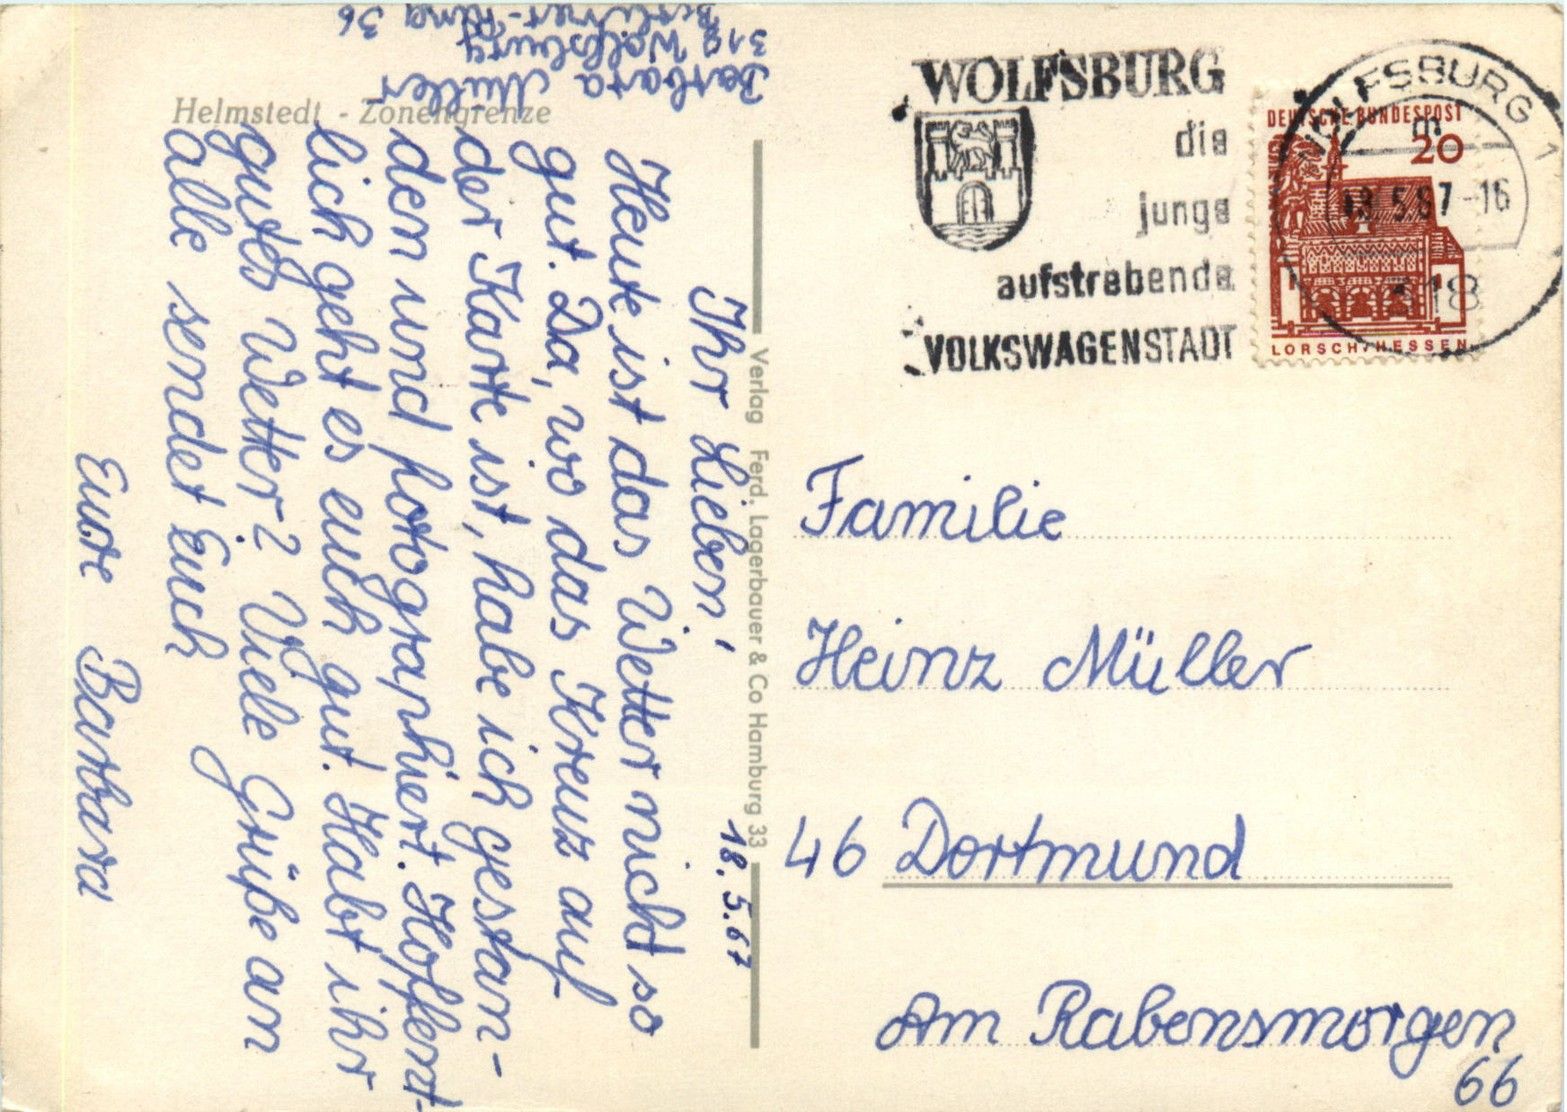 Barbara Müller
318 Wolfsburg
Berliner-Ring 36
Helmstedt - Zonengrenze
18.5.67
Ihr Lieben!
Heute ist das Wetter nicht so
gut. Da, wo das Kreuz auf
der Karte ist, habe ich gestan-
den und fotographiert. Hoffent-
lich geht es euch gut. Habt ihr
gutes Wetter? Viele Grüße an
alle sendet Euch
Eure Barbara
Verlag Ferd. Lagerbauer & Co Hamburg 33
WOLFSBURG
die
junge
aufstrebende
VOLKSWAGENSTADT
DEUTSCHE BUNDESPOST
20
LORSCH/HESSEN
WOLFSBURG 1
m
18.5.67-16
318
Familie
Heinz Müller
46 Dortmund
Am Rabensmorgen
66